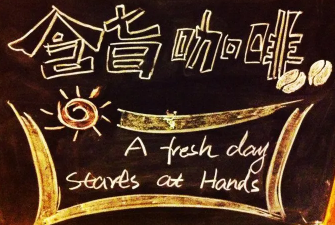 咖啡
A fresh day
starts at Hands